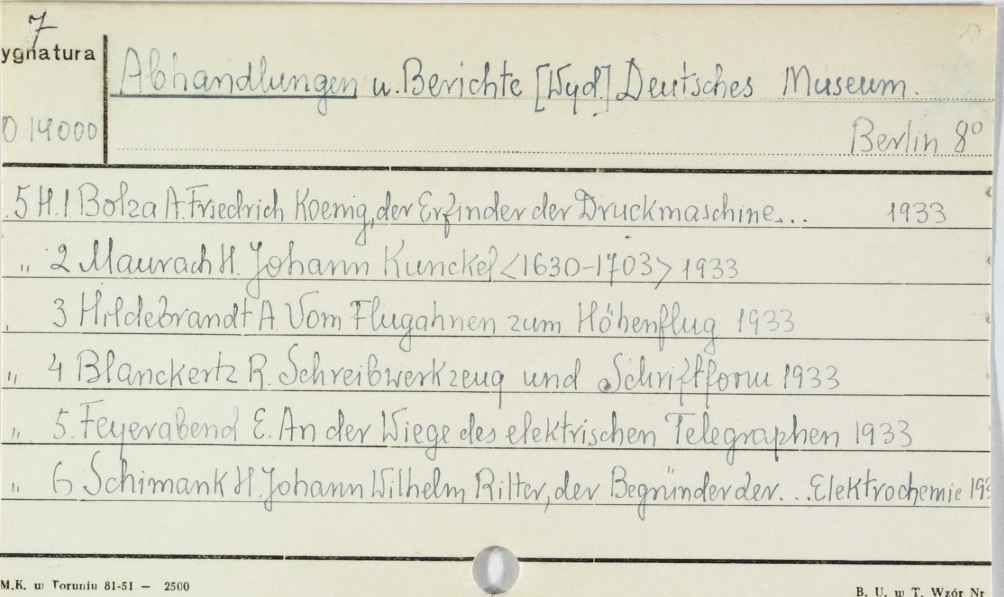 7
ygnatura
Abhandlungen u. Berichte [Wyd.] Deutsches Museum.
O 14000
Berlin 8°
5 H. 1 Bolza A. Friedrich Koenig, der Erfinder der Druckmaschine... 1933
„ 2 Maurach H. Johann Kunckel <1630-1703> 1933
3 Hildebrandt A Vom Flugahnen zum Höhenflug 1933
„ 4 Blanckertz R. Schreibwerkzeug und Schriftform 1933
„ 5. Feyerabend E. An der Wiege des elektrischen Telegraphen 1933
„ 6 Schimank H. Johann Wilhelm Ritter, der Begründer der... Elektrochemie 193
M.K. w Toruniu 81-51 — 2500
B. U. w T. Wzór Nr